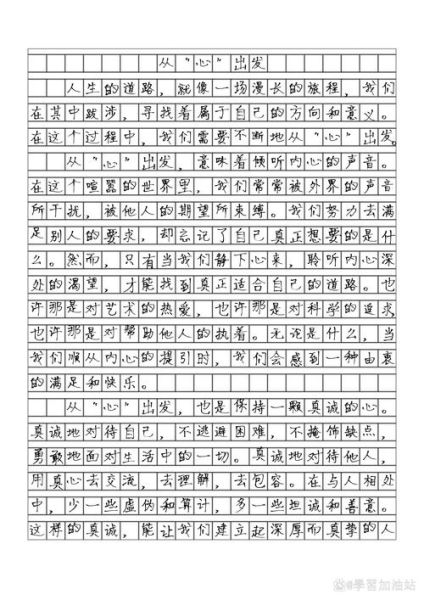 从“心”出发
人生的道路，就像一场漫长的旅程，我们
在其中跋涉，寻找着属于自己的方向和意义。
在这个过程中，我们需要不断地从“心”出发。
从“心”出发，意味着倾听内心的声音。
在这个喧嚣的世界里，我们常常被外界的声音
所干扰，被他人的期望所束缚。我们努力去满
足别人的要求，却忘记了自己真正想要的是什
么。然而，只有当我们静下心来，聆听内心深
处的渴望，才能找到真正适合自己的道路。也
许那是对艺术的热爱，也许那是对科学的追求，
也许那是对帮助他人的执着。无论是什么，当
我们顺从内心的指引时，我们会感到一种由衷
的满足和快乐。
从“心”出发，也是保持一颗真诚的心。
真诚地对待自己，不逃避困难，不掩饰缺点，
勇敢地面对生活中的一切。真诚地对待他人，
用真心去交流，去理解，去包容。在与人相处
中，少一些虚伪和算计，多一些坦诚和善意。
这样的真诚，能让我们建立起深厚而真挚的人
@學習加油站